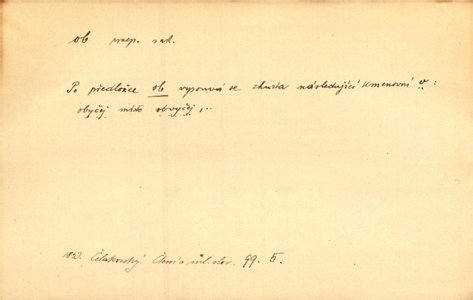 ob praep. s ak.
Po předložce ob vysouvá se zhusta následující kmenovní v:
obyčej místo obvyčej,..
1853. Čelakovský. Čtení o ml. slov. 99. 5.